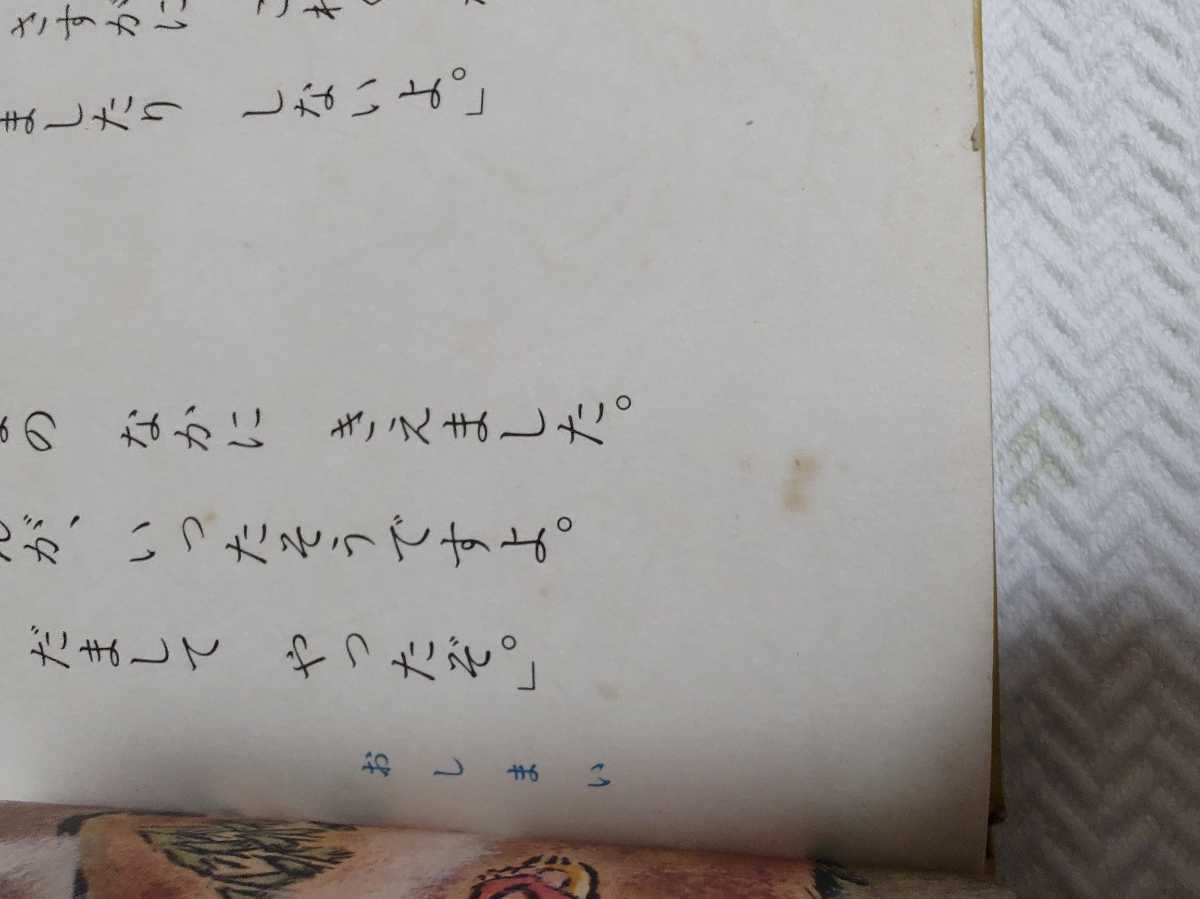 さすがに
ましたり しないよ。」
の なかに きえました。
が、いったそうですよ。
だまして やったぞ。」
おしまい